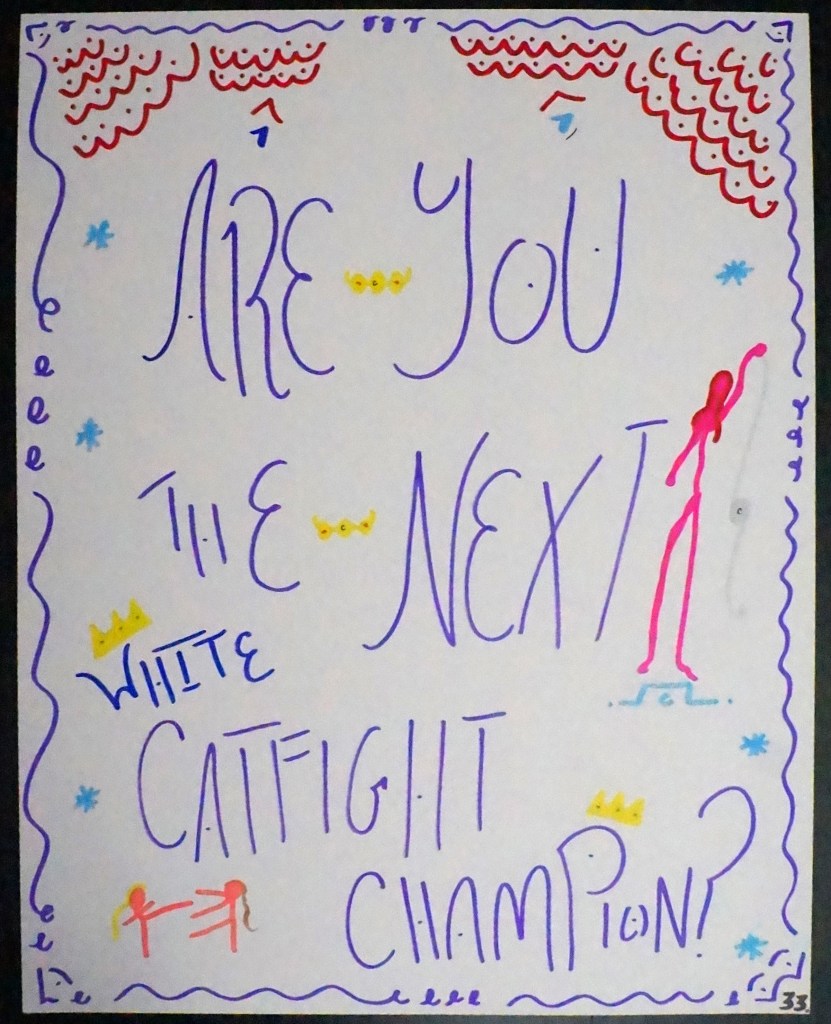 ARE YOU
THE NEXT
WHITE
CATFIGHT
CHAMPION?
33.